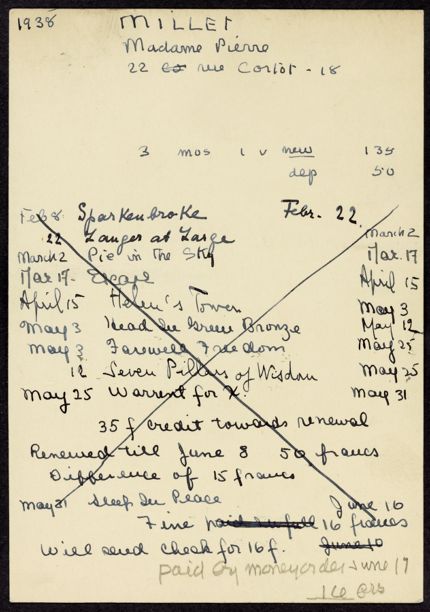 1938 MILLET
Madame Pierre
22 rue Cortot - 18
3 mos 1 v new 135
dep 50
Feb 8 Sparkenbroke Febr. 22
22 Langer at Large March 2
March 2 Pie in The Sky Mar. 17
Mar 17- Escape April 15
April 15 Helen's Tower May 3
May 3 Head In Green Bronze May 12
May 3 Farewell Freedom May 25
12 Seven Pillars of Wisdom May 25
May 25 Warrent for X. May 31
35 f credit towards renewal
Renewed till June 8 50 francs
Difference of 15 francs
May 31 Sleep In Peace June 16
Fine paid in full 16 francs
Will send check for 16 f. June 10
paid by moneyorder June 17